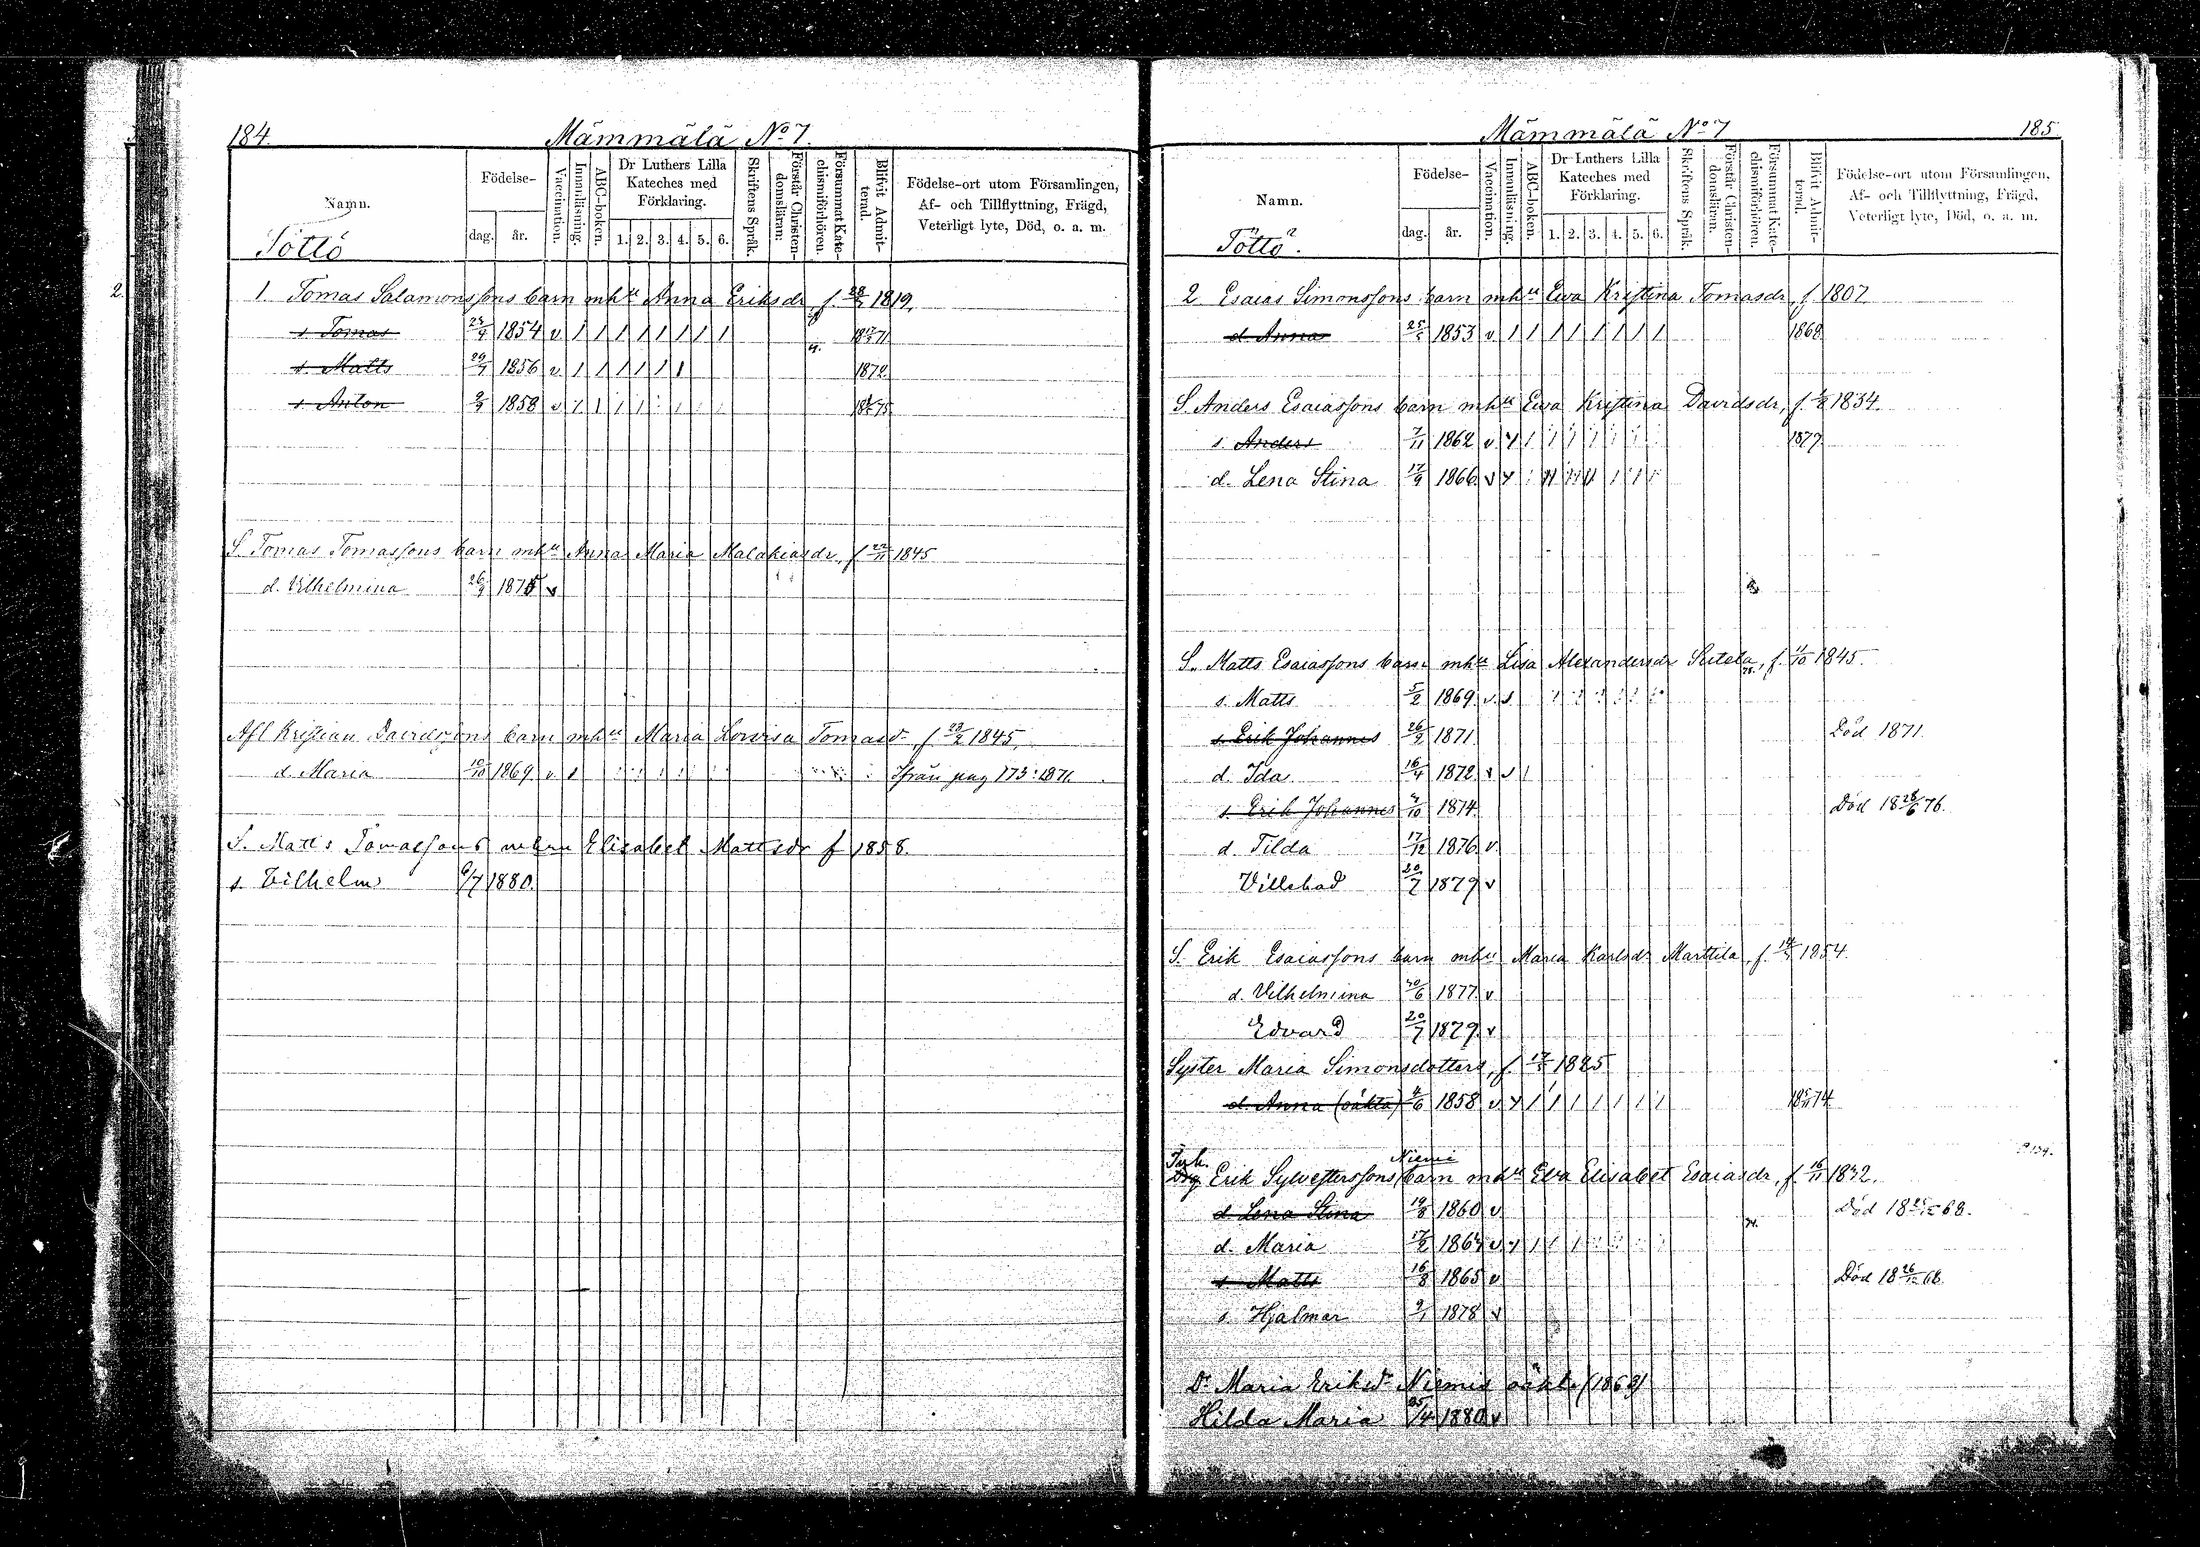 184. Mämmälä No 7.
Namn. Födelse- dag. år. Vaccination. Innanläsning. ABC-boken. Dr Luthers Lilla Kateches med Förklaring. 1. 2. 3. 4. 5. 6. Skriftens Språk. Förstår Christendomsläran: Försummat Katechismiförhören. Blifvit Admitterad. Födelse-ort utom Församlingen, Af- och Tillflyttning, Frägd, Veterligt lyte, Död, o. a. m.
Töttö
1. Tomas Salamonssons barn mhu Anna Eriksdr f. 1819.
s. Tomas 1854 v
s. Matts 29/7 1856 v. 1872.
s. Anton 1858 v
S. Tomas Tomassons barn mhu Anna Maria Malakiasdr, f 22/11 1845
d. Vilhelmina 26/9 1875 v
Afl Kristian Davidssons barn mhu Maria Lovisa Tomasdr f 23/2 1845.
d. Maria 10/10 1869 v ifrån pag 173: 1871.
S. Matts Tomassons m hu Elisabet Mattsdr f 1858.
s. Vilhelm 6/7 1880.
Mämmälä No 7 185
Namn. Födelse- dag. år. Vaccination. Innanläsning. ABC-boken. Dr Luthers Lilla Kateches med Förklaring. 1. 2. 3. 4. 5. 6. Skriftens Språk. Förstår Christendomsläran. Försummat Katechismiförhören. Blifvit Admitterad. Födelse-ort utom Församlingen, Af- och Tillflyttning, Frägd, Veterligt lyte, Död, o. a. m.
Töttö.
2 Esaias Simonssons barn mhu Ewa Kristina Tomasdr, f 1807.
d. Anna 1853 v 1868
S. Anders Esaiassons barn mhu Ewa Kristina Davidsdr, f. 1834.
s. Anders 7/11 1862 v 1877
d. Lena Stina 17/9 1866 v
S. Matts Esaiassons barn mhu Lisa Alexandersdr Sutela, f. 11/10 1845.
s. Matts 5/2 1869 v
s. Erik Johannes 26/9 1871 Död 1871
d. Ida 16/4 1872 v
s. Erik Johannes 4/10 1874. Död 18 28/6 76.
d. Tilda 17/12 1876 v
Villehad 20/7 1879 v
S. Erik Esaiassons barn mhu Maria Karlsdr Marttila, f. 1854.
d. Vilhelmina 30/6 1877 v
Edvard 20/7 1879 v
Syster Maria Simonsdotters, f 1825
d. Anna (oäkta) 4/6 1858 v
Inh. Niemi
Erik Sylvesterssons barn mhu Eva Elisabet Esaiasdr, f. 16/11 1832.
d. Lena Stina 19/8 1860 v Död 18 68.
d. Maria 17/2 1864 v
s. Matts 16/8 1865 v Död 18 26/12 68.
s. Hjalmar 9/1 1878 v
Dr Maria Eriksdr Niemis oäkta (1863)
Hilda Maria 25/4 1880 v